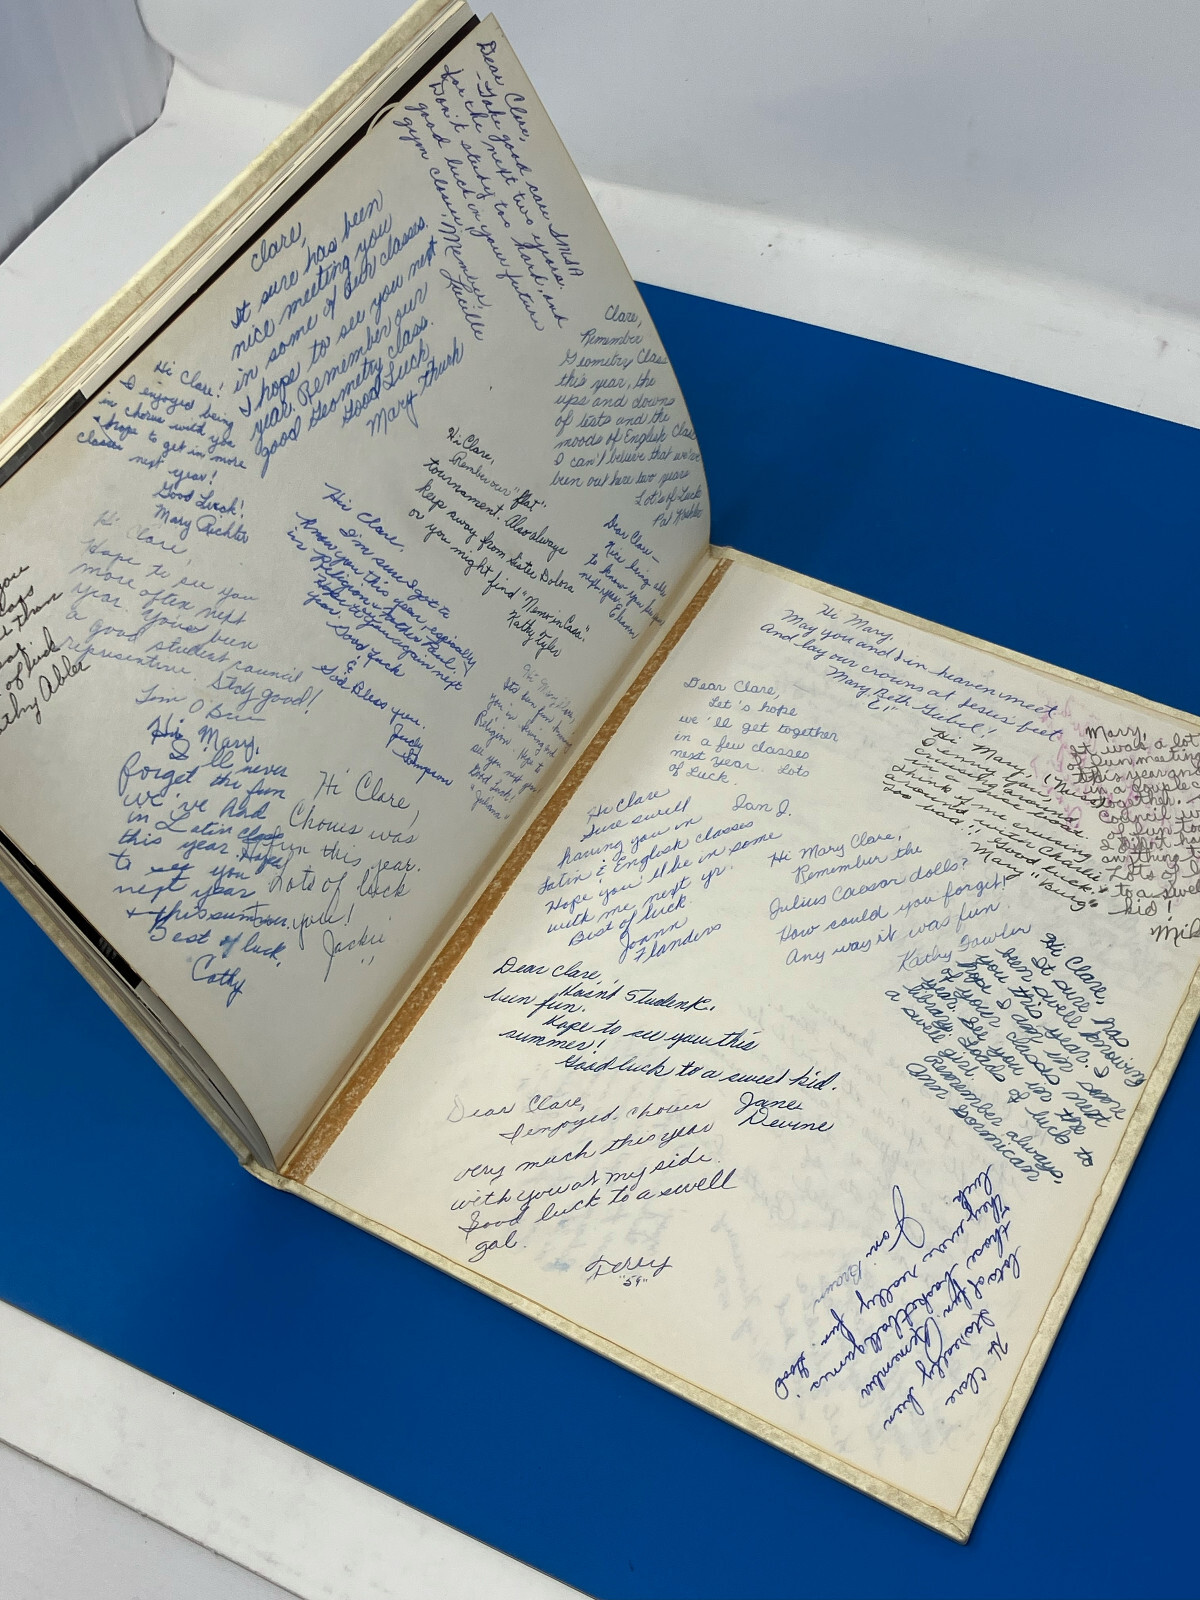 Dear Clare,
Take good care SMSA
for the next two years.
Don't study too hard, and
good luck in your future
gym classes.
Member,
Lucille
Clare,
It sure has been
nice meeting you
in some of our classes.
I hope to see you next
year. Remember our
good Geometry class.
Good Luck
Mary
Clare,
Remember
Geometry Clas
this year, the
ups and downs
of tests and the
moods of English Class
I can't believe that we've
been out here two years
Lot's of Luck
Pat
Hi Clare!
I enjoyed being
in chorus with you
& hope to get in more
classes next year!
Good Luck!
Mary Richter
Hi Clare,
Rember our "flat"
tournament. Also always
keep away from Sister Dolora
or you might find
Kathy Tyler
Dear Clare -
Nice being able
to know you
next year.
Hi Clare,
I'm sure I got to
know you this year, especially
in Religion & Father Paul.
Hope to see you again next
year. Good Luck
&
God Bless you.
Judy
Simpson
Hi Clare,
Hope to see you
more often next
year. You've been
a good student council
representive. Stay good!
Tim O'Brien
you
days
than
of luck
Kathy Abler
you in
Religion. Hope to
see you next year
Good Luck!
Hi Mary,
I'll never
forget the fun
we've had
in Latin class
this year. Hope
to see you
next year
+ this summer.
Best of luck,
Cathy
Hi Clare,
Chorus was
fun this year.
Lots of luck
to you!
Jackie
Hi Mary,
May you and I in heaven meet
And lay our crowns at Jesus' feet
Mary Beth
Dear Clare,
Let's hope
we'll get together
in a few classes
next year. Lots
of Luck.
Jan J.
Hi Mary,
I enjoy our
cruising around
in a nice
Think of me cruising
around with Charlie.
Too bad!! Good luck.
Mary "Bug"
Mary,
It was a lot
of fun meeting
this year and
in a couple
together.
Council
of fun
I didn't
anything
Lots of
to a swell
kid!
Hi Clare
Sure swell
having you in
Latin & English classes
Hope you'll be in some
with me next yr.
Best of luck.
Joann
Flanders
Hi Mary Clare,
Remember the
Julius Caesar dolls?
How could you forget!
Any way it was fun.
Kathy Fowler
Dear Clare,
Hasn't Student C.
been fun.
Hope to see you this
summer!
Good luck to a sweet kid.
Jane
Devine
Hi Clare,
It sure has
been swell knowing
you this year. I
hope I am in some
of your classes next
year. See you in the
library. Loads of luck to
a swell girl.
Remember always,
Ann Gormican
Dear Clare,
I enjoyed chorus
very much this year
with you at my side.
Good luck to a swell
gal.
Terry
"59"
Hi Clare
It's really been
lots of fun. Remember
those basketball games
They were really fun. Good
luck.
Joni Brown